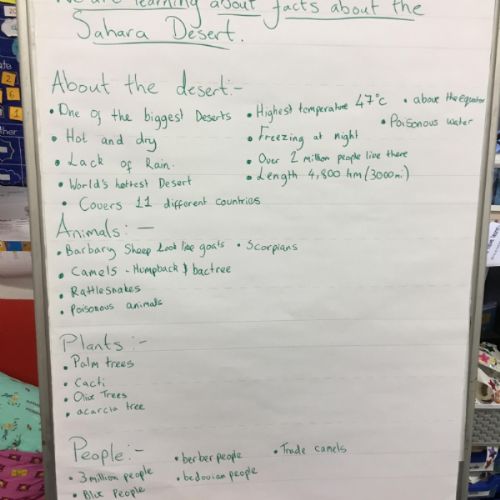 We are learning about facts about the
Sahara Desert.
About the desert:-
• One of the biggest Deserts
• Hot and dry
• Lack of Rain.
• World's hottest Desert
• Covers 11 different countries
• Highest temperature 47°c
• Freezing at night
• Over 2 million people live there
• Length 4,800 km (3000mi)
• above the equator
• Poisonous water
Animals:-
• Barbary Sheep Look like goats
• Camels - Humpback & bactree
• Rattlesnakes
• Poisonous animals
• Scorpians
Plants:-
• Palm trees
• Cacti
• Olive Trees
• acarcia tree
People:-
• 3 million people
• Blue People
• berber people
• bedouian people
• Trade camels